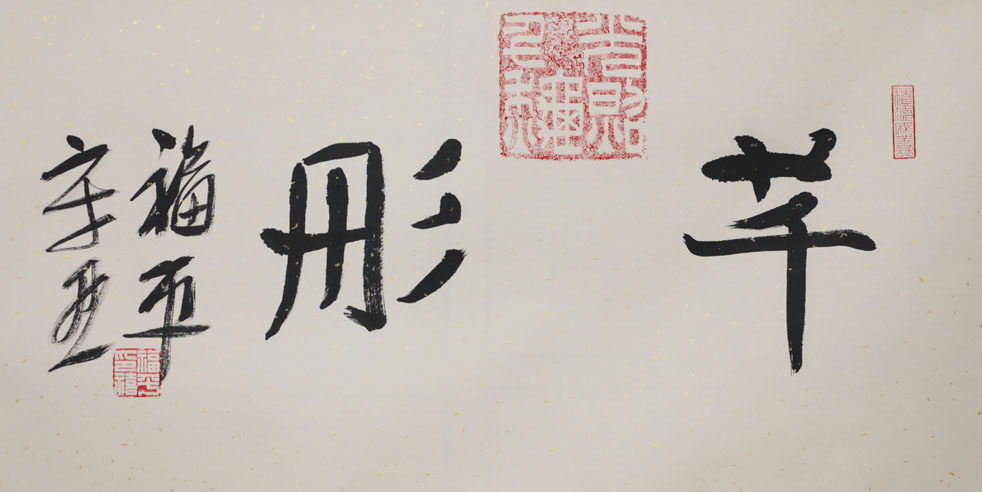 芊彤
福平
辛丑